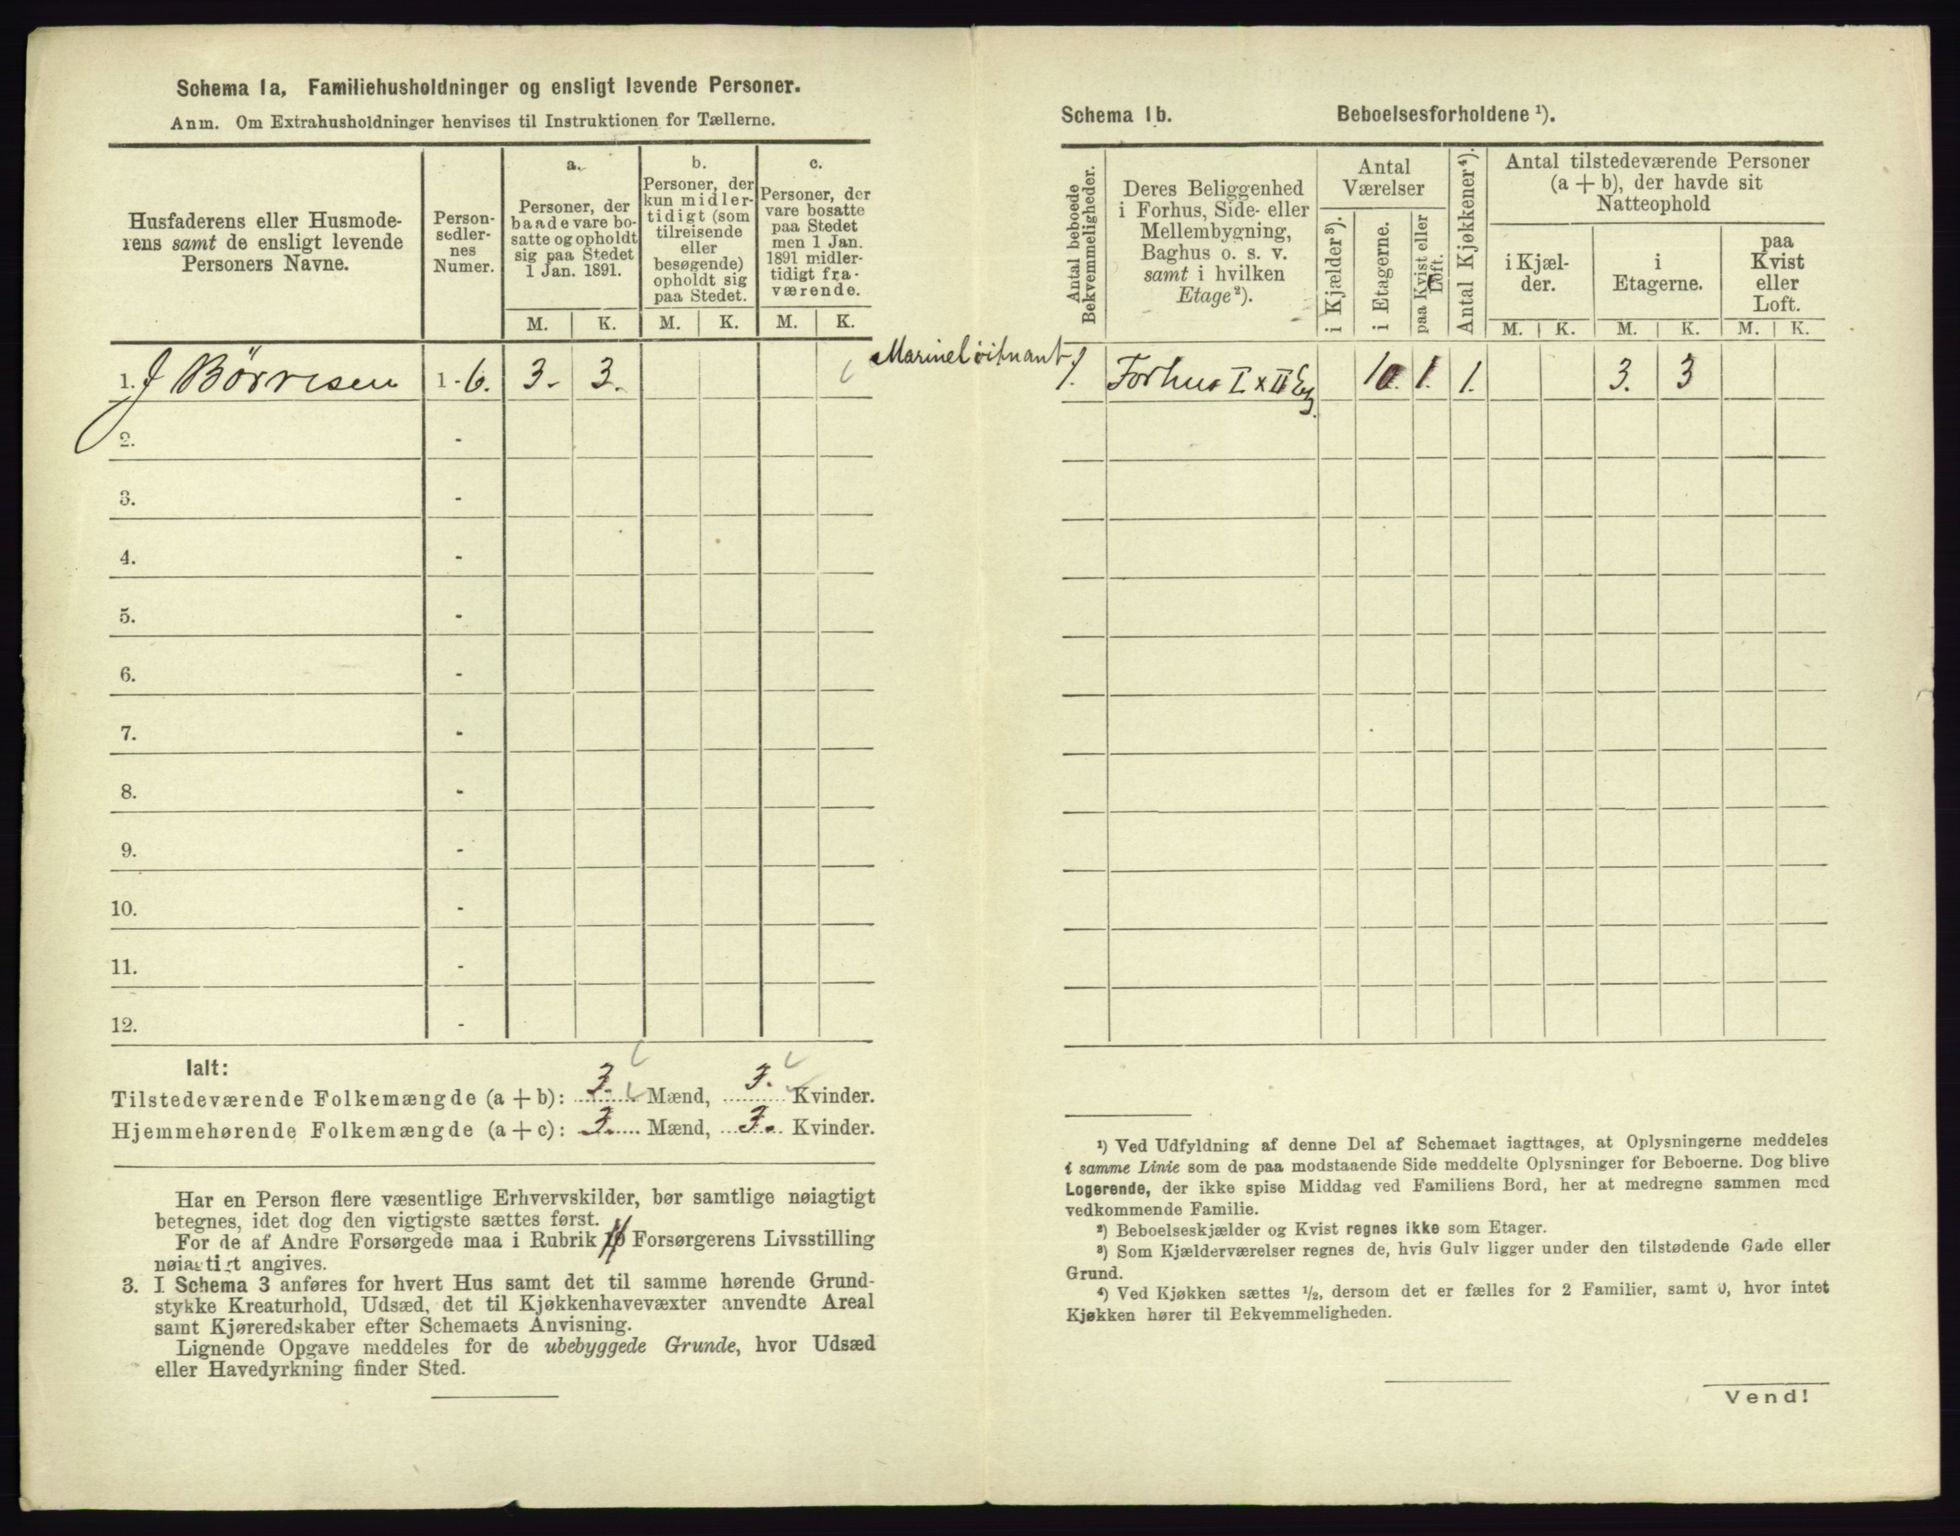 Schema 1a, Familiehusholdninger og ensligt levende Personer.
Anm. Om Extrahusholdninger henvises til Instruktionen for Tællerne.
Husfaderens eller Husmode-
rens samt de ensligt levende
Personers Navne.
Person-
sedler-
nes
Numer.
a.
Personer, der
baade vare bo-
satte og opholdt
sig paa Stedet
1 Jan. 1891.
b.
Personer, der
kun midler-
tidigt (som
tilreisende
eller
besøgende)
opholdt sig
paa Stedet.
c.
Personer, der
vare bosatte
paa Stedet
men 1 Jan.
1891 midler-
tidigt fra-
værende.
M. K. M. K. M. K.
1. J Börresen 1 - 6. 3. 3.
2. -
3. -
4. -
5. -
6. -
7. -
8. -
9. -
10. -
11. -
12. -
Ialt:
Tilstedeværende Folkemængde (a + b): 3. Mænd, 3. Kvinder.
Hjemmehørende Folkemængde (a + c): 3. Mænd, 3. Kvinder.
Har en Person flere væsentlige Erhvervskilder, bør samtlige nøiagtigt
betegnes, idet dog den vigtigste sættes først.
For de af Andre Forsørgede maa i Rubrik Forsørgerens Livsstilling
nøiagtigt angives.
3. I Schema 3 anføres for hvert Hus samt det til samme hørende Grund-
stykke Kreaturhold, Udsæd, det til Kjøkkenhavevæxter anvendte Areal
samt Kjøreredskaber efter Schemaets Anvisning.
Lignende Opgave meddeles for de ubebyggede Grunde, hvor Udsæd
eller Havedyrkning finder Sted.
Schema 1b. Beboelsesforholdene ¹).
Antal beboede
Bekvemmeligheder.
Deres Beliggenhed
i Forhus, Side- eller
Mellembygning,
Baghus o. s. v.
samt i hvilken
Etage ²).
Antal
Værelser
i Kjælder ³).
i Etagerne.
paa Kvist eller
Loft.
Antal Kjøkkener ⁴).
Antal tilstedeværende Personer
(a + b), der havde sit
Natteophold
i Kjæl-
der.
i
Etagerne.
paa
Kvist
eller
Loft.
M. K. M. K. M. K.
Marinelöitnant 1. Forhus I x II Etg. 10. 1. 1. 3. 3
¹) Ved Udfyldning af denne Del af Schemaet iagttages, at Oplysningerne meddeles
i samme Linie som de paa modstaaende Side meddelte Oplysninger for Beboerne. Dog blive
Logerende, der ikke spise Middag ved Familiens Bord, her at medregne sammen med
vedkommende Familie.
²) Beboelseskjælder og Kvist regnes ikke som Etager.
³) Som Kjælderværelser regnes de, hvis Gulv ligger under den tilstødende Gade eller
Grund.
⁴) Ved Kjøkken sættes ½, dersom det er fælles for 2 Familier, samt 0, hvor intet
Kjøkken hører til Bekvemmeligheden.
Vend!